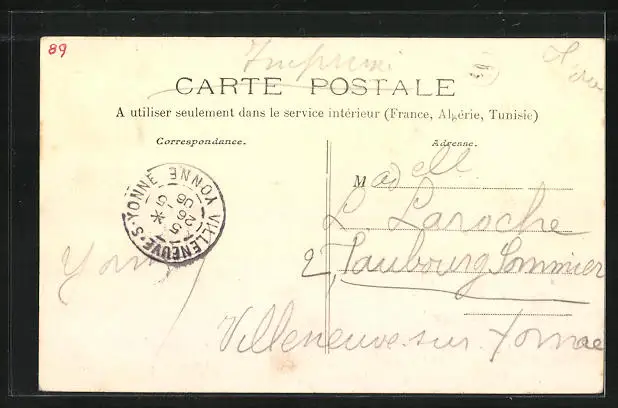 89
Imprimé
CARTE POSTALE
A utiliser seulement dans le service intérieur (France, Algérie, Tunisie)
Correspondance.
Adresse.
Madelle
L. Laroche
2, Faubourg Sommier
Villeneuve sur Yonne
VILLENEUVE-S-YONNE YONNE
5
26-5
06